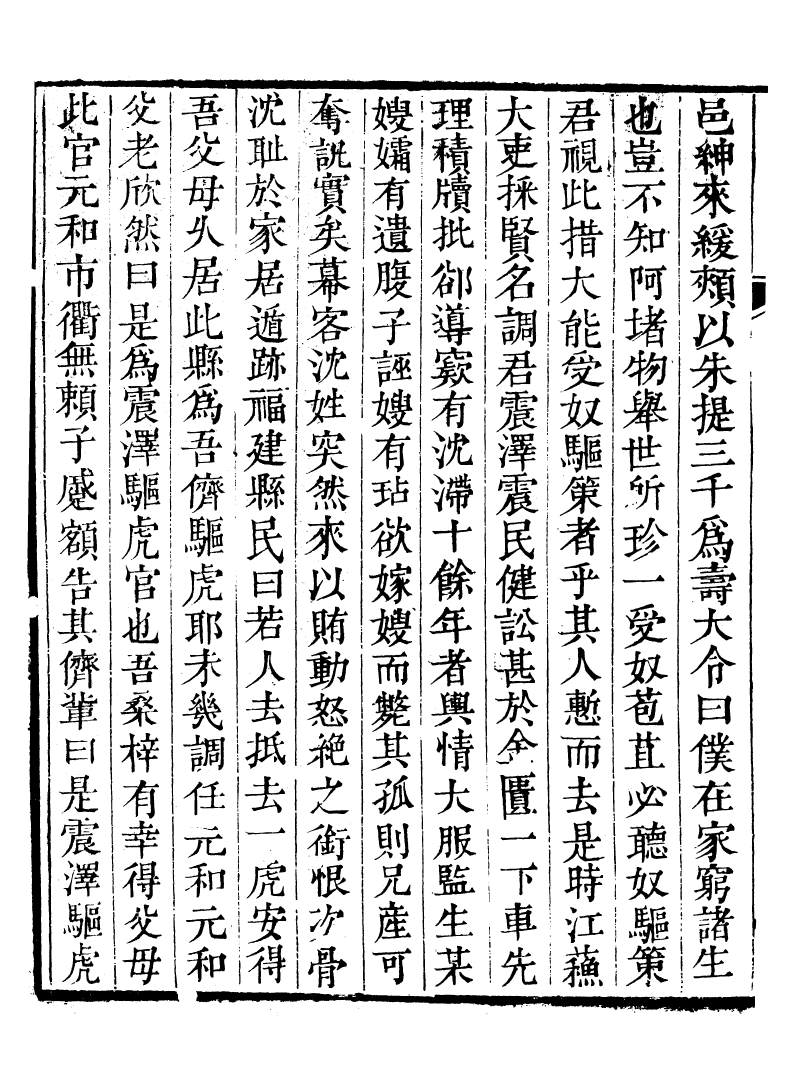 邑紳來緩頰以朱提三千爲壽大令曰僕在家窮諸生
也豈不知阿堵物舉世所珍一受奴苞苴必聽奴驅策
君視此措大能受奴驅策者乎其人慙而去是時江蘓
大吏採賢名調君震澤震民健訟甚於金匱一下車先
理積牘批郤導窽有沈滯十餘年者輿情大服監生某
嫂孀有遺腹子誣嫂有玷欲嫁嫂而斃其孤則兄產可
奪訊實矣幕客沈姓突然來以賄動怒絶之銜恨次骨
沈耻於家居遁跡福建縣民曰若人去抵去一虎安得
吾父母乆居此縣爲吾儕驅虎耶未幾調任元和元和
父老欣然曰是爲震澤驅虎官也吾桑梓有幸得父母
此官元和市衢無頼子蹙額告其儕輩曰是震澤驅虎